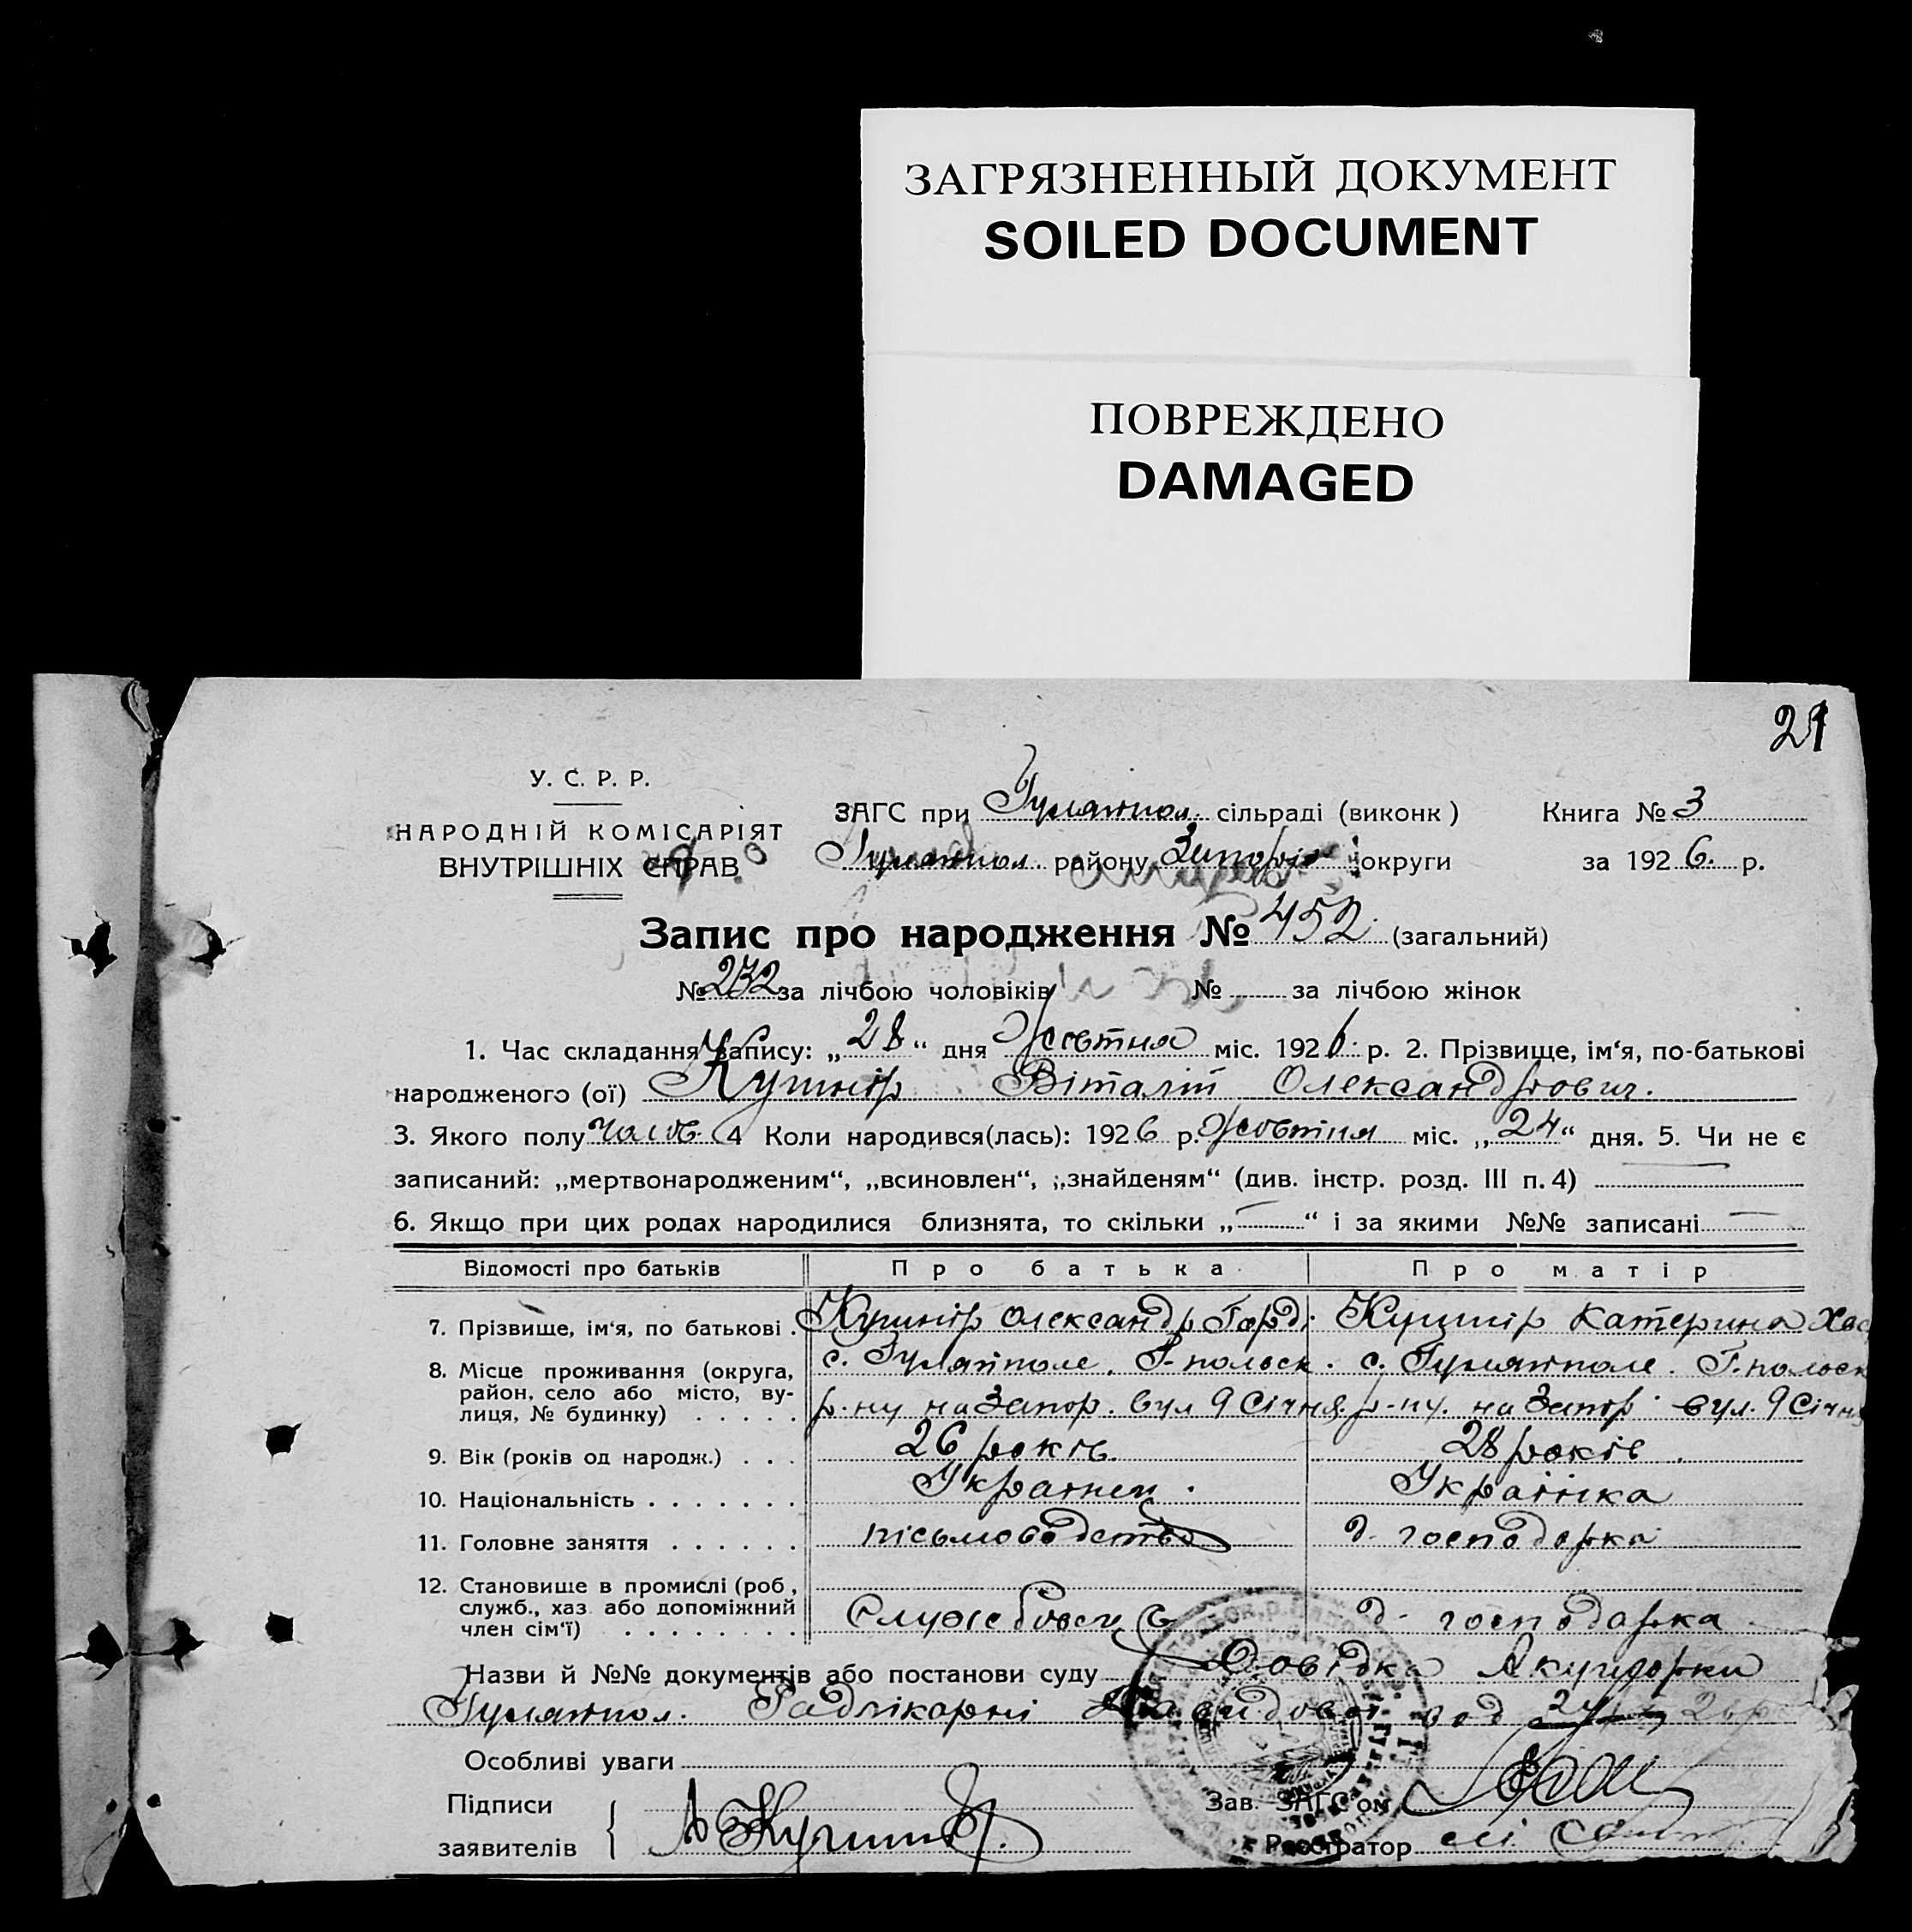 ЗАГРЯЗНЕННЫЙ ДОКУМЕНТ
SOILED DOCUMENT
ПОВРЕЖДЕНО
DAMAGED
21
У. С. Р. Р.
НАРОДНІЙ КОМІСАРІЯТ
ВНУТРІШНІХ СПРАВ
ЗАГС при Гуляйпол. сільраді (виконк)
Книга № 3
Гуляйпол району Запоріз округи
за 1926. р.
Запис про народження № 452 (загальний)
№ 232 за лічбою чоловіків № за лічбою жінок
1. Час складання запису: „28“ дня Жовтня міс. 1926. р. 2. Прізвище, ім‘я, по-батькові
народженого (ої) Кушнір Віталій Олександрович.
3. Якого полу чолов. 4 Коли народився(лась): 1926 р. Жовтня міс. „24“ дня. 5. Чи не є
записаний: „мертвонародженим“, „всиновлен“, „знайденям“ (див. інстр. розд. III п. 4) —
6. Якщо при цих родах народилися близнята, то скільки „—“ і за якими №№ записані —
Відомості про батьків Про батька Про матір
7. Прізвище, ім‘я, по батькові . Кушнір Олександр Горд. Кушнір Катерина
8. Місце проживання (округа, с. Гуляйполе. Г-польск. с. Гуляйполе. Г.польск
район, село або місто, ву-
лиця, № будинку) . . . . . р-ну на Запор. вул 9 Січня р-ну. на Запор. вул. 9 Січня
9. Вік (років од народж.) . . . 26 років. 28 років.
10. Національність . . . . . . . Українец. Українка
11. Головне заняття . . . . . . письмоводство д. господарка
12. Становище в промислі (роб,
служб., хаз. або допоміжний
член сім‘ї) . . . . . . . . . Службовець д. господарка
Назви й №№ документів або постанови суду Довідка Акушорки
Гуляйпол. Давидової од
Особливі уваги
Підписи
заявителів
А Кушнір.
Зав. ЗАГС‘ом
Реєстратор